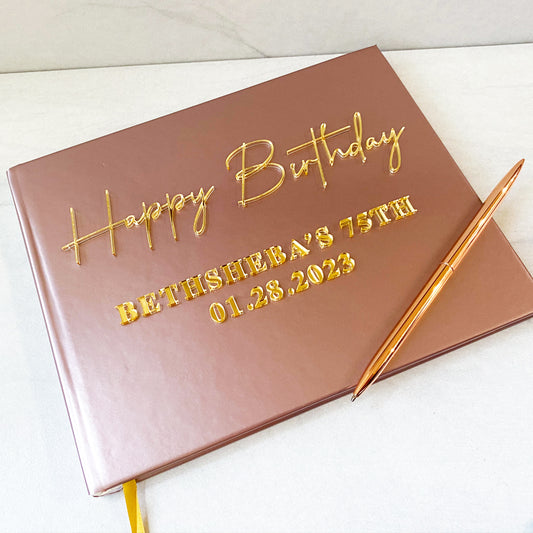 Happy Birthday
BETHSHEBA'S 75TH
01.28.2023